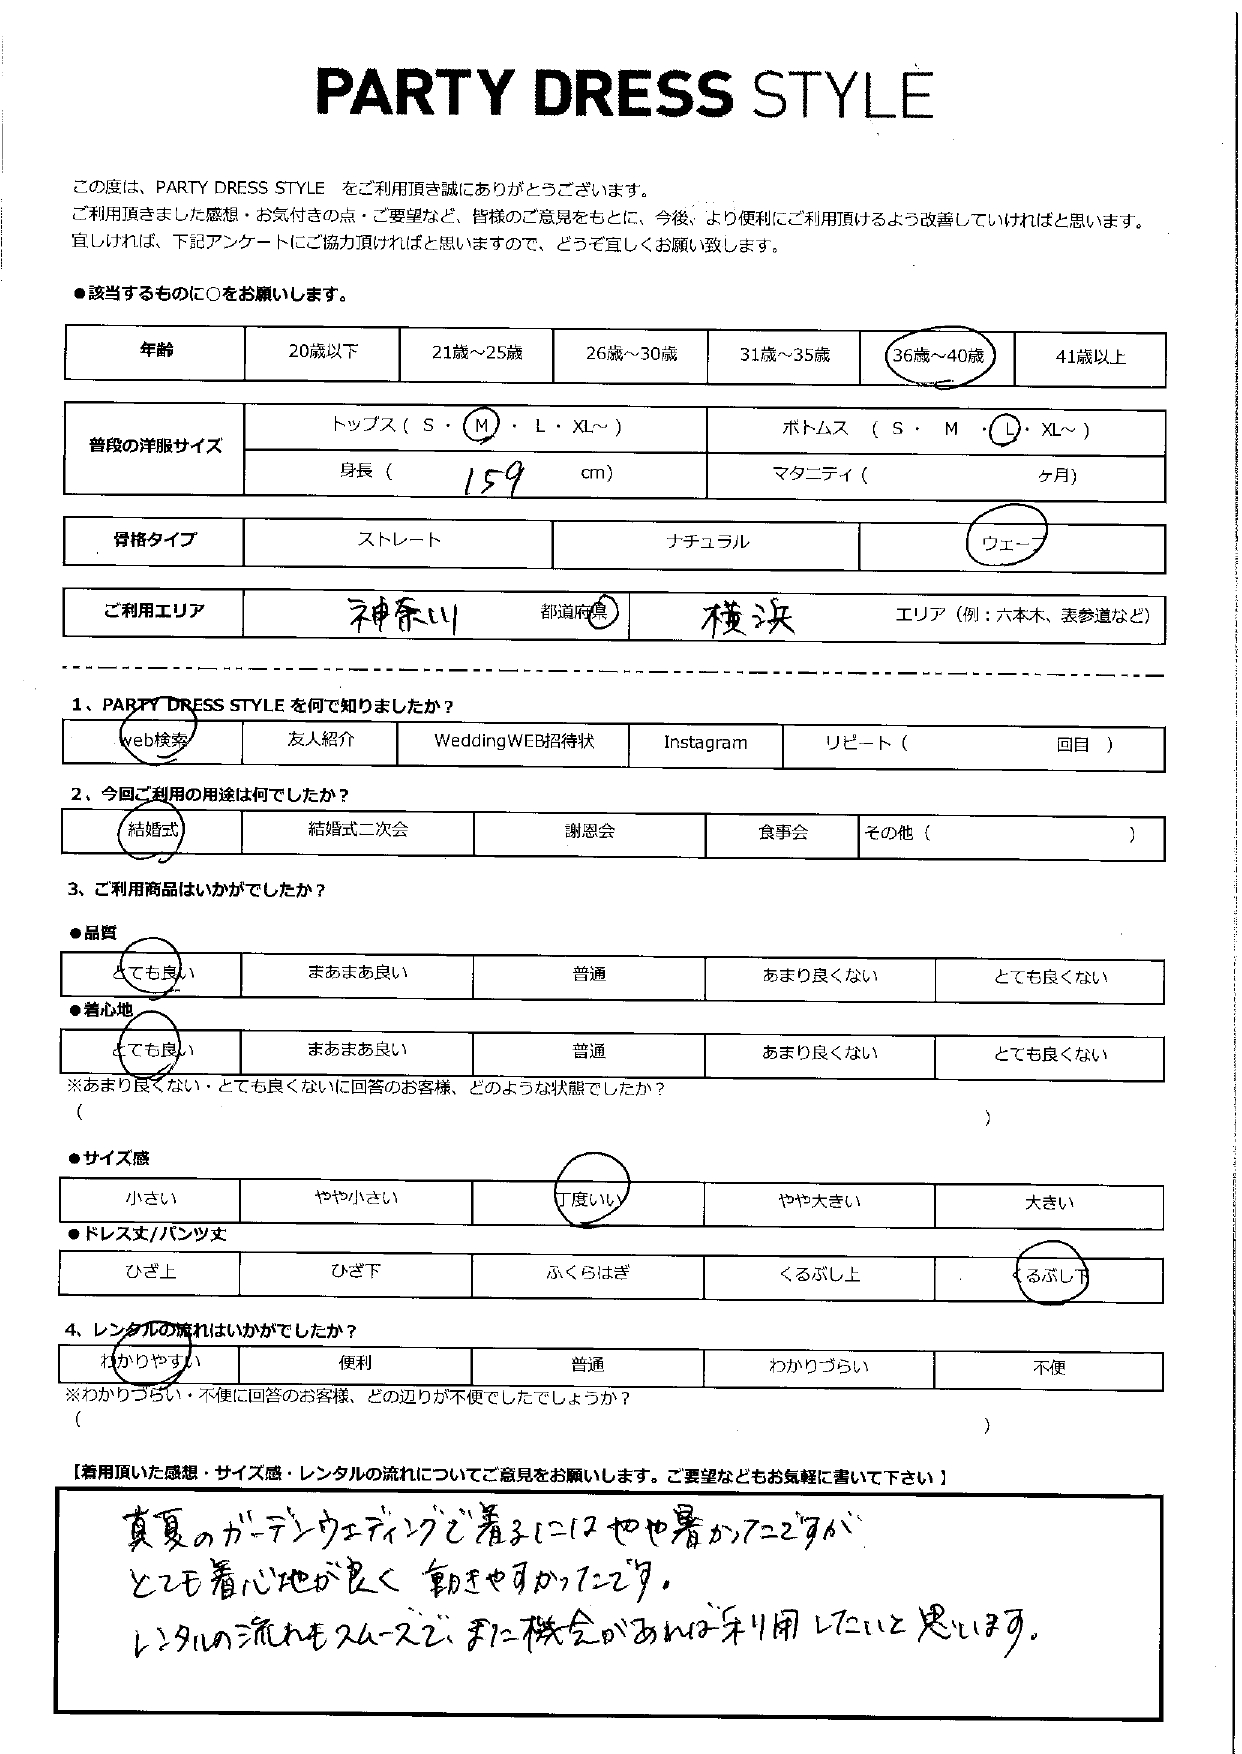 PARTY DRESS STYLE
この度は、PARTY DRESS STYLE をご利用頂き誠にありがとうございます。
ご利用頂きました感想・お気付きの点・ご要望など、皆様のご意見をもとに、今後、より便利にご利用頂けるよう改善していければと思います。
宜しければ、下記アンケートにご協力頂ければと思いますので、どうぞ宜しくお願い致します。
●該当するものに○をお願いします。
年齢 20歳以下 21歳～25歳 26歳～30歳 31歳～35歳 36歳～40歳 41歳以上
普段の洋服サイズ
トップス ( S ・ M ・ L ・ XL～ ) ボトムス ( S ・ M ・ L ・ XL～ )
身長 ( 159 cm) マタニティ ( ヶ月)
骨格タイプ ストレート ナチュラル ウェーブ
ご利用エリア 神奈川 都道府県 横浜 エリア（例：六本木、表参道など）
1、PARTY DRESS STYLE を何で知りましたか？
web検索 友人紹介 WeddingWEB招待状 Instagram リピート ( 回目 )
2、今回ご利用の用途は何でしたか？
結婚式 結婚式二次会 謝恩会 食事会 その他 ( )
3、ご利用商品はいかがでしたか？
●品質
とても良い まあまあ良い 普通 あまり良くない とても良くない
●着心地
とても良い まあまあ良い 普通 あまり良くない とても良くない
※あまり良くない・とても良くないに回答のお客様、どのような状態でしたか？
( )
●サイズ感
小さい やや小さい 丁度いい やや大きい 大きい
●ドレス丈/パンツ丈
ひざ上 ひざ下 ふくらはぎ くるぶし上 くるぶし下
4、レンタルの流れはいかがでしたか？
わかりやすい 便利 普通 わかりづらい 不便
※わかりづらい・不便に回答のお客様、どの辺りが不便でしたでしょうか？
( )
【着用頂いた感想・サイズ感・レンタルの流れについてご意見をお願いします。ご要望などもお気軽に書いて下さい】
真夏のガーデンウェディングで着るにはやや暑かったですが
とても着心地が良く動きやすかったです。
レンタルの流れもスムーズで、また機会があれば利用したいと思います。